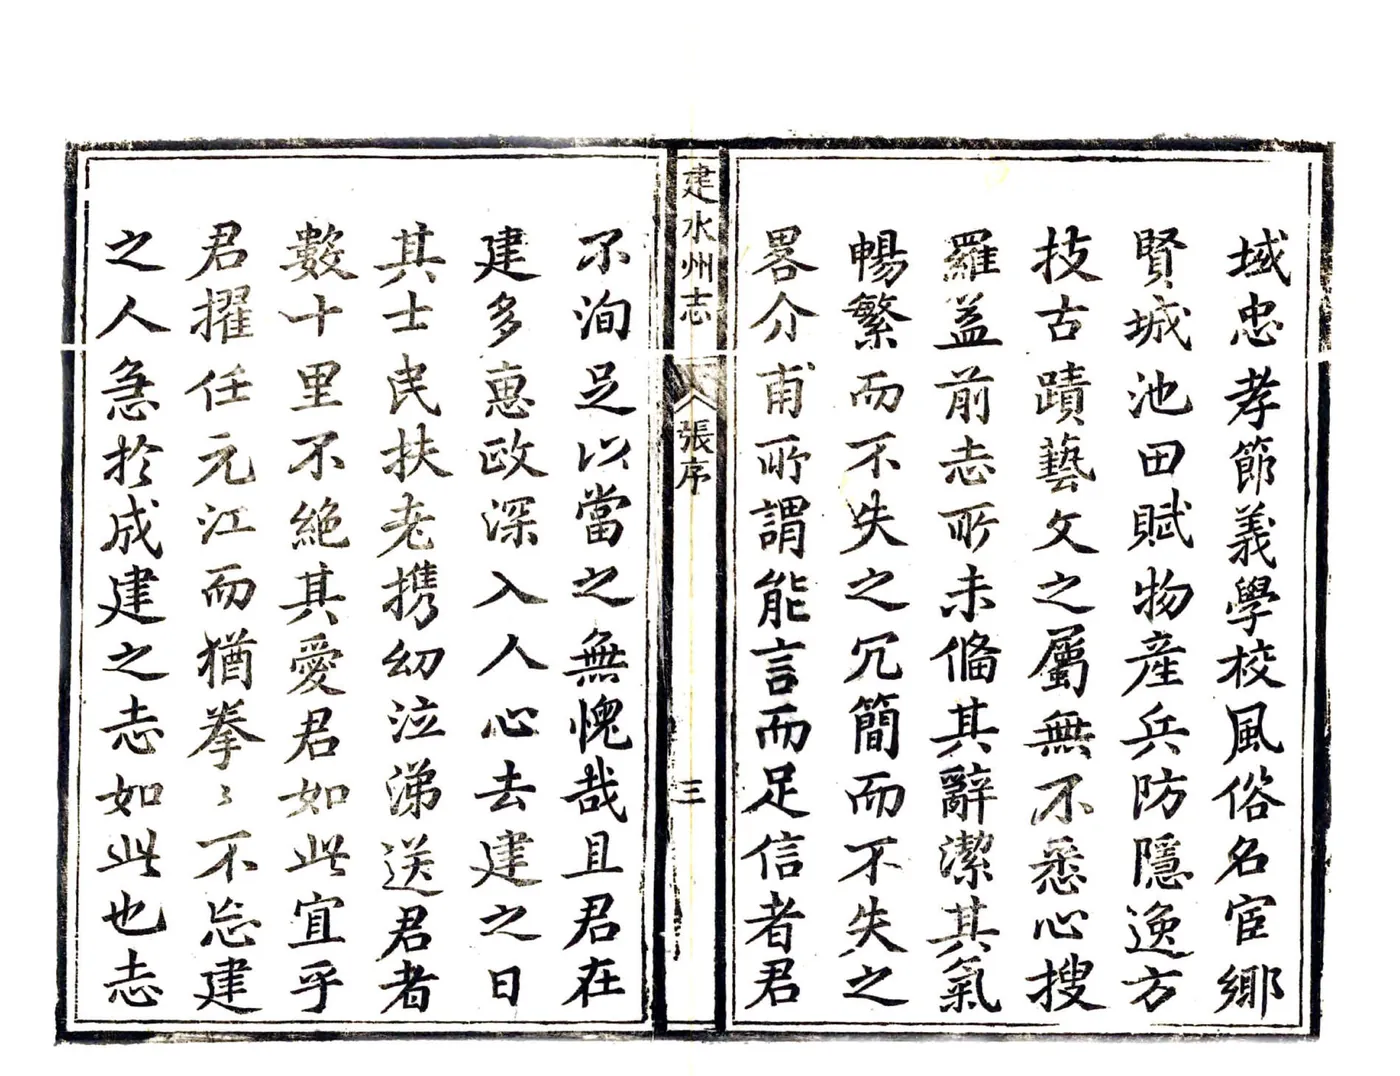 域忠孝節義學校風俗名宦鄉
賢城池田賦物產兵防隱逸方
技古蹟藝文之屬無不悉心搜
羅蓋前志所未俻其辭潔其氣
暢繁而不失之冗簡而不失之
畧介甫所謂能言而足信者君
建水州志
張序
三
不洵足以當之無愧哉且君在
建多惠政深入人心去建之日
其士民扶老携幼泣涕送君者
數十里不絕其愛君如此宜乎
君擢任元江而猶拳〻不忘建
之人急於成建之志如此也志